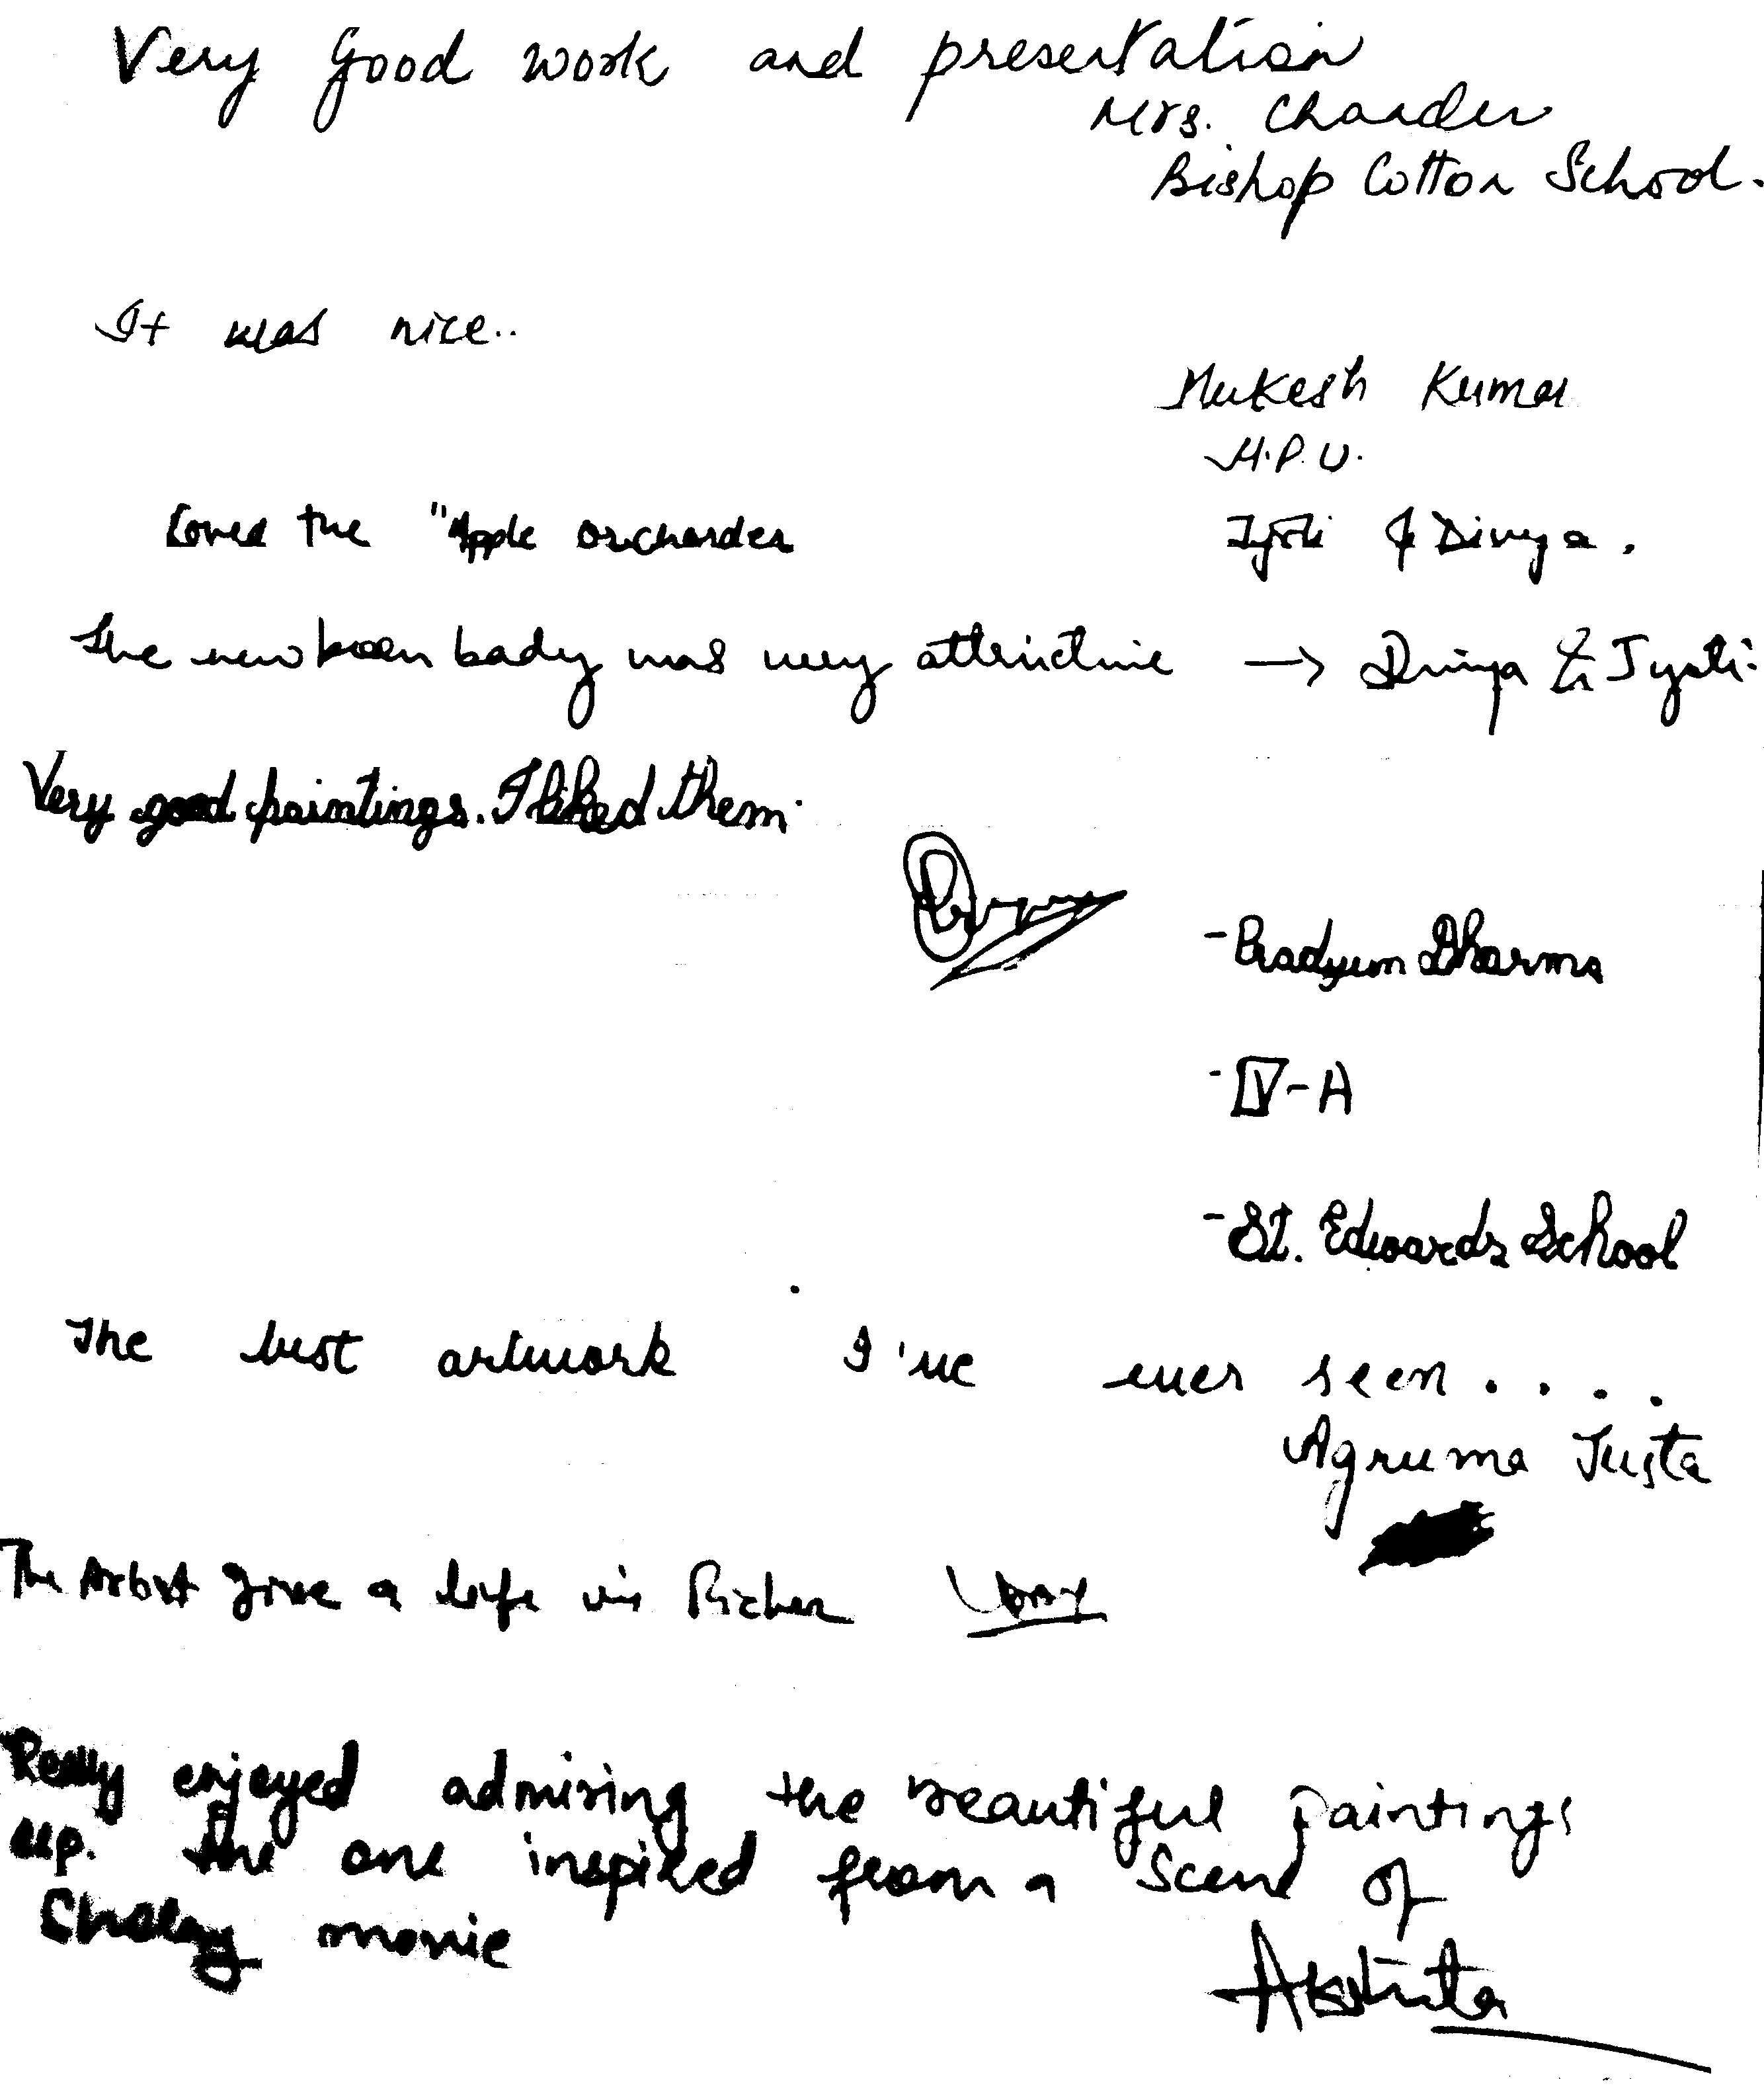 Very good work and presentation
Mrs. Chander
Bishop Cotton School.
It was nice..
Mukesh Kumar
H.P.U.
Loved the "Apple orcharder
Jyoti & Divya.
The new born bady was very attrictive → Divya & Jyoti
Very good paintings. I liked them.
- Pradyum Dharma
- IV-A
- St. Edwards School
The best artwork I've ever seen....
Agruma Justa
The Artist give a life in Picher
Really enjoyed admiring the beautiful paintings
esp. the one inspired from a scene of
Sholay movie